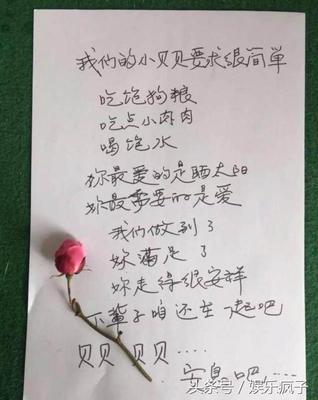 我们的小贝贝要求很简单
吃饱狗粮
吃点小肉肉
喝饱水
妳最爱的是晒太阳
妳最需要的是爱
我们做到了
妳满足了
妳走得很安祥
下辈子咱还在一起吧
贝贝 贝贝····
安息吧,····
头条号／娱乐疯子